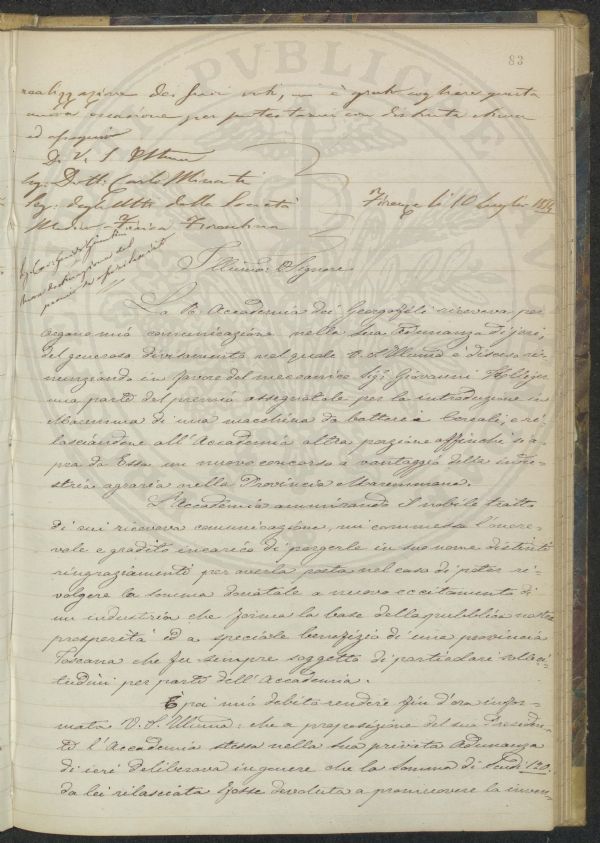 83
realizzazione dei suoi voti, mi è grato cogliere questa
nuova occasione per protestarmi con distinta stima
ed ossequio
Di V. S. Illma
Sig. Dott. Carlo Minati
Seg. degli Atti della Società Firenze li 10 Luglio
Medico-Fisica Fiorentina
Illumo. Signore
La R. Accademia dei Georgofili riceveva per
organo mio comunicazione nella sua Adunanza di jeri,
del generoso divisamento nel quale V. S. Illuma è discesa ri-
nunziando in favore del meccanico Sigr. Giovanni
una parte del premio assegnatale per la introduzione in
Maremma di una macchina da battere i Cereali, e ri-
lasciandone all'Accademia altra porzione affinchè si a-
pra da Essa un nuovo concorso a vantaggio della indu-
stria agraria nella Provincia Maremmana.
L'Accademia ammirando il nobile tratto
di cui riceveva comunicazione, mi commesse l'onore-
vole e gradito incarico di porgerle in suo nome distinti
ringraziamenti per averla posta nel caso di poter ri-
volgere la somma donatale a nuovo eccitamento di
un industria che forma la base della pubblica nostra
prosperità ed a speciale benefizio di una provincia
Toscana che fu sempre soggetto di particolari solleci-
tudini per parte dell'Accademia.
È poi mio debito rendere fin d'ora infor-
mata V. S. Illuma: che a proposizione del suo Presiden-
te l'Accademia stessa nella sua privata Adunanza
di ieri deliberava in genere che la somma di Scudi 120.
da lei rilasciata fosse devoluta a promuovere la inven-